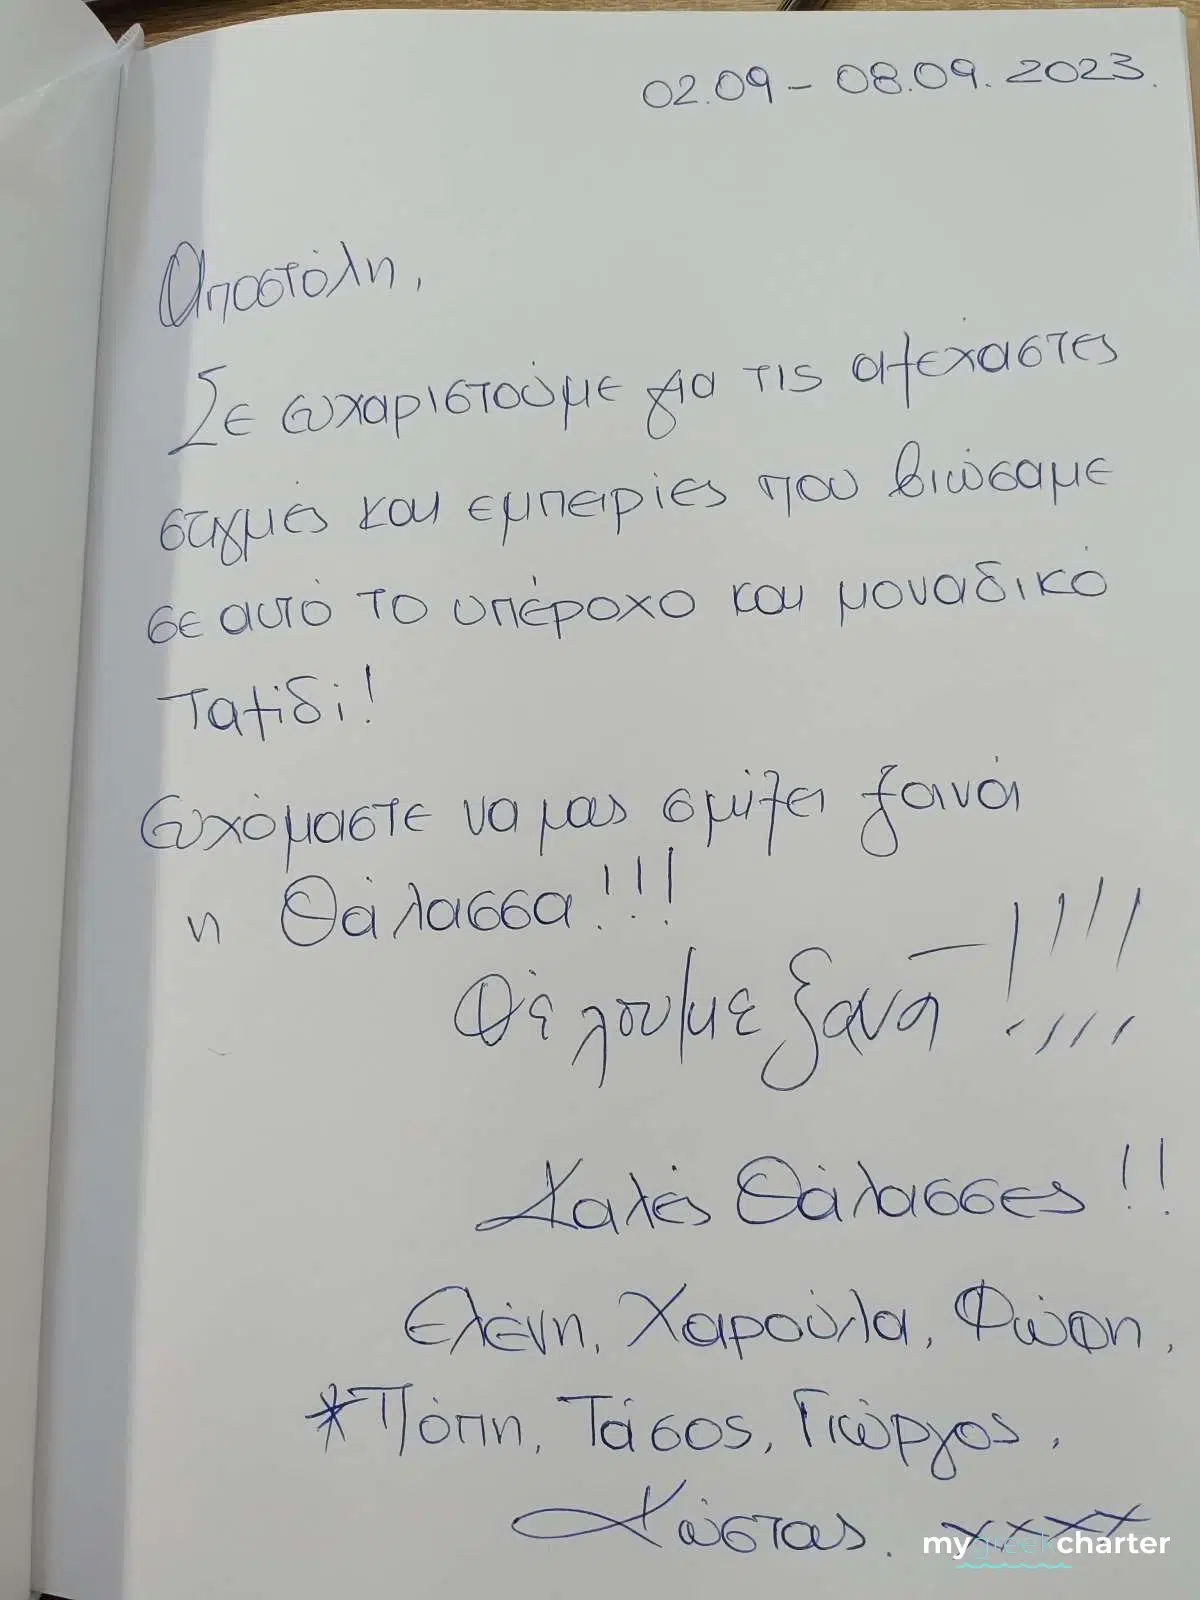 02.09 - 08.09.2023.
Αποστόλη,
Σε ευχαριστούμε για τις αξέχαστες
στιγμές και εμπειρίες που βιώσαμε
σε αυτό το υπέροχο και μοναδικό
ταξίδι!
Ευχόμαστε να μας σμίξει ξανά
η Θάλασσα!!!
Θέλουμε ξανά!!!!
Καλές Θάλασσες!!
Ελένη, Χαρούλα, Φώφη,
*Πόπη, Τάσος, Γιώργος,
Κώστας. xxxx
mygreekcharter